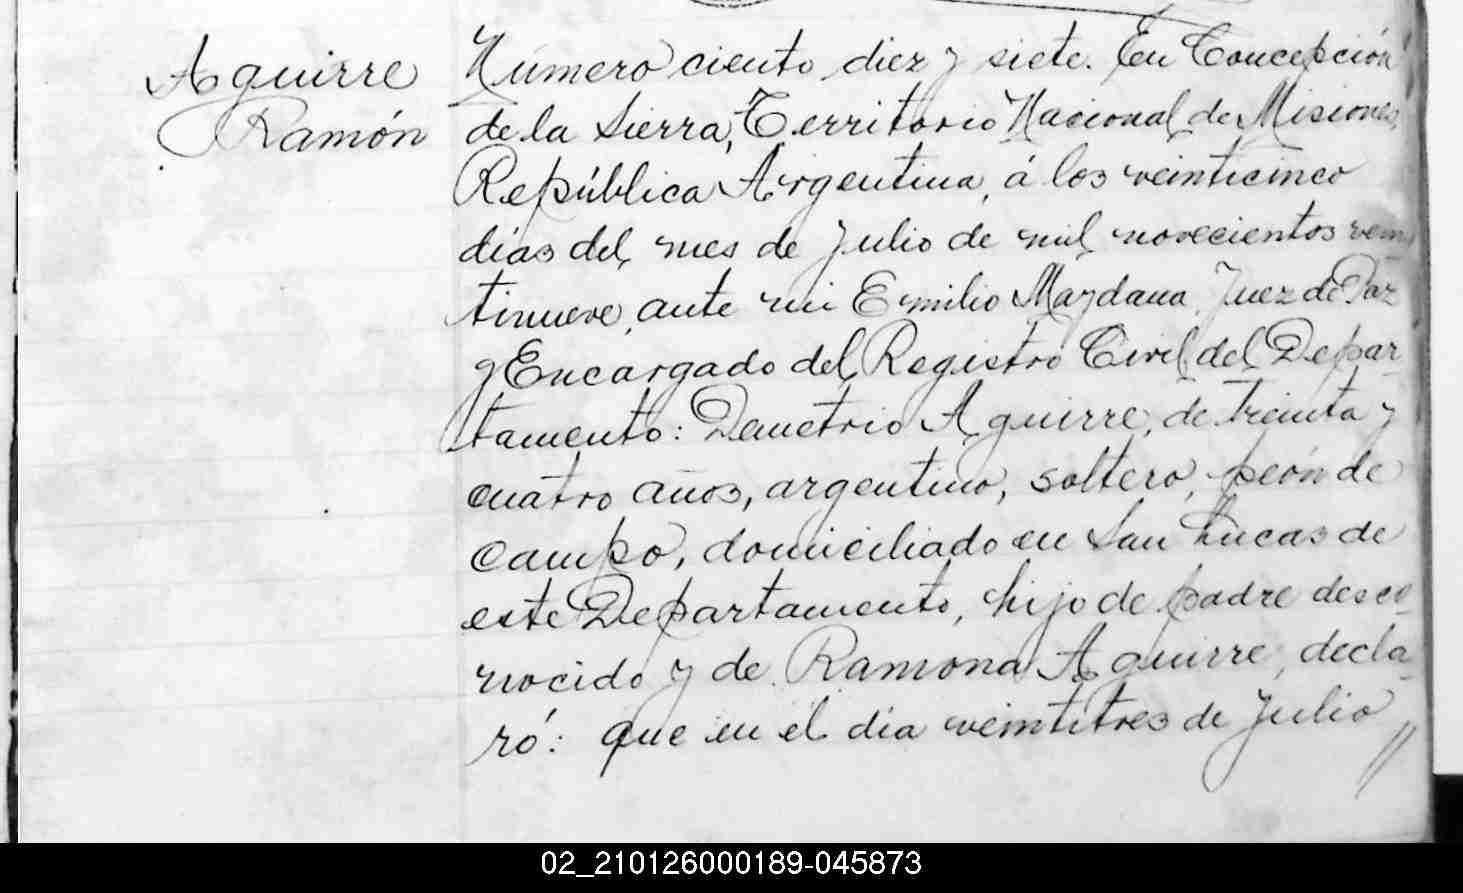 Aguirre
Ramón
Número ciento diez y siete. En Concepción
de la Sierra, Territorio Nacional de Misiones,
República Argentina, á los veinticinco
días del mes de Julio de mil novecientos vein
tinueve, ante mi Emilio Maydana, Juez de Paz
y Encargado del Registro Civil del Depar-
tamento: Demetrio Aguirre, de treinta y
cuatro años, argentino, soltero, peón de
campo, domiciliado en San Lucas de
este Departamento, hijo de padre desco-
nocido y de Ramona Aguirre, decla-
ró: que en el día veintitres de Julio //
02_210126000189-045873